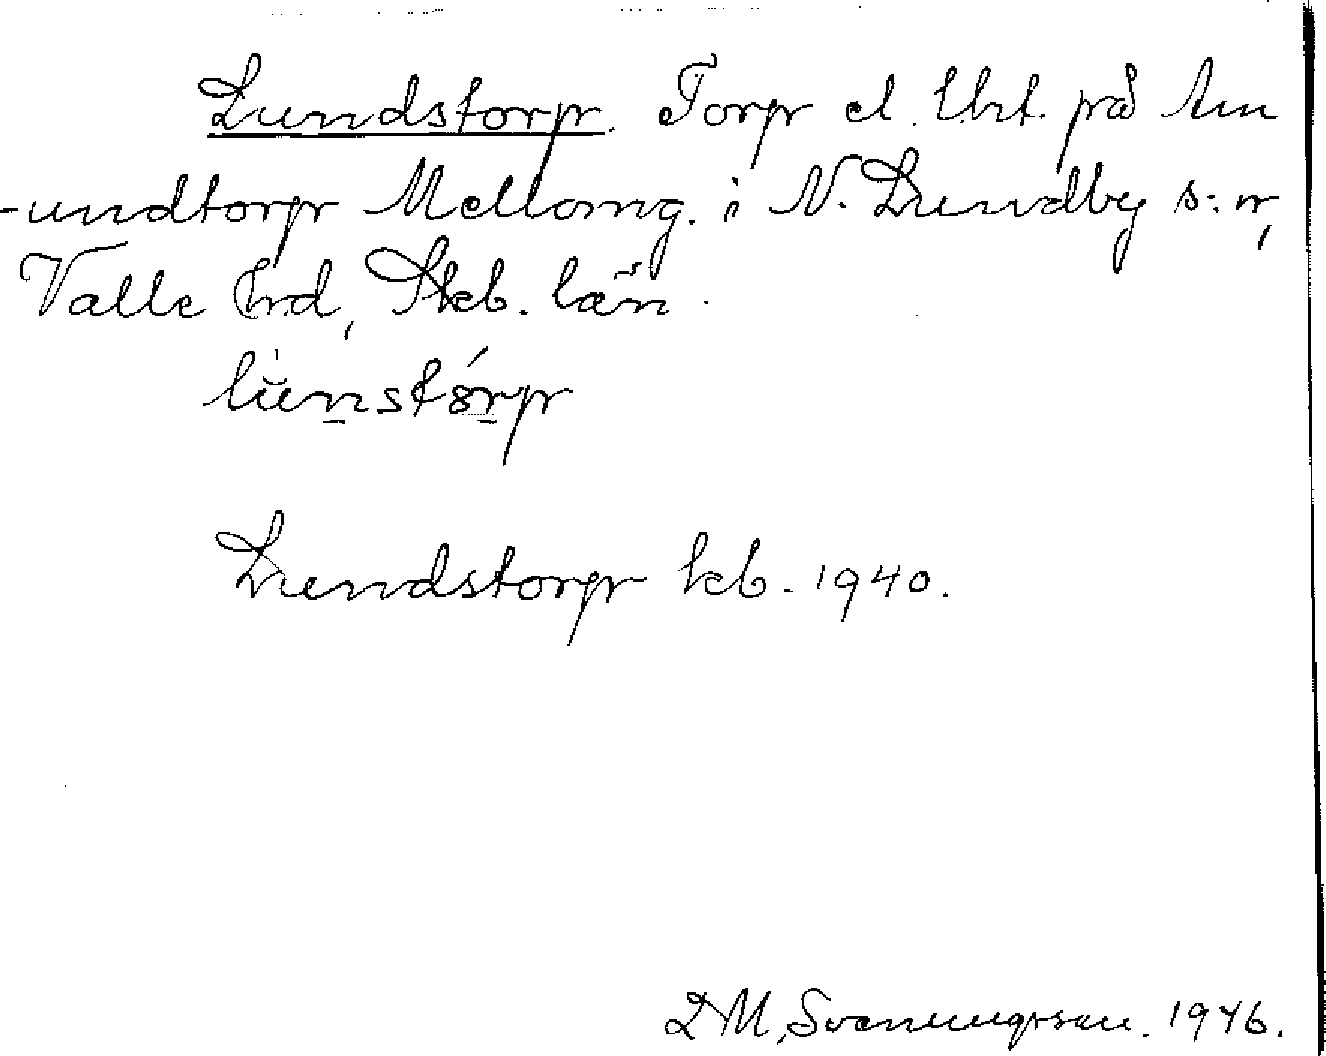 Lundstorp. Torp el. lht. på Am
-undtorp Mellomg. i N. Lundby s:n,
Valle hrd, Skb. län.
lu̇nstórp
Lundstorp kb. 1940.
D M, Svenungsson. 1946.